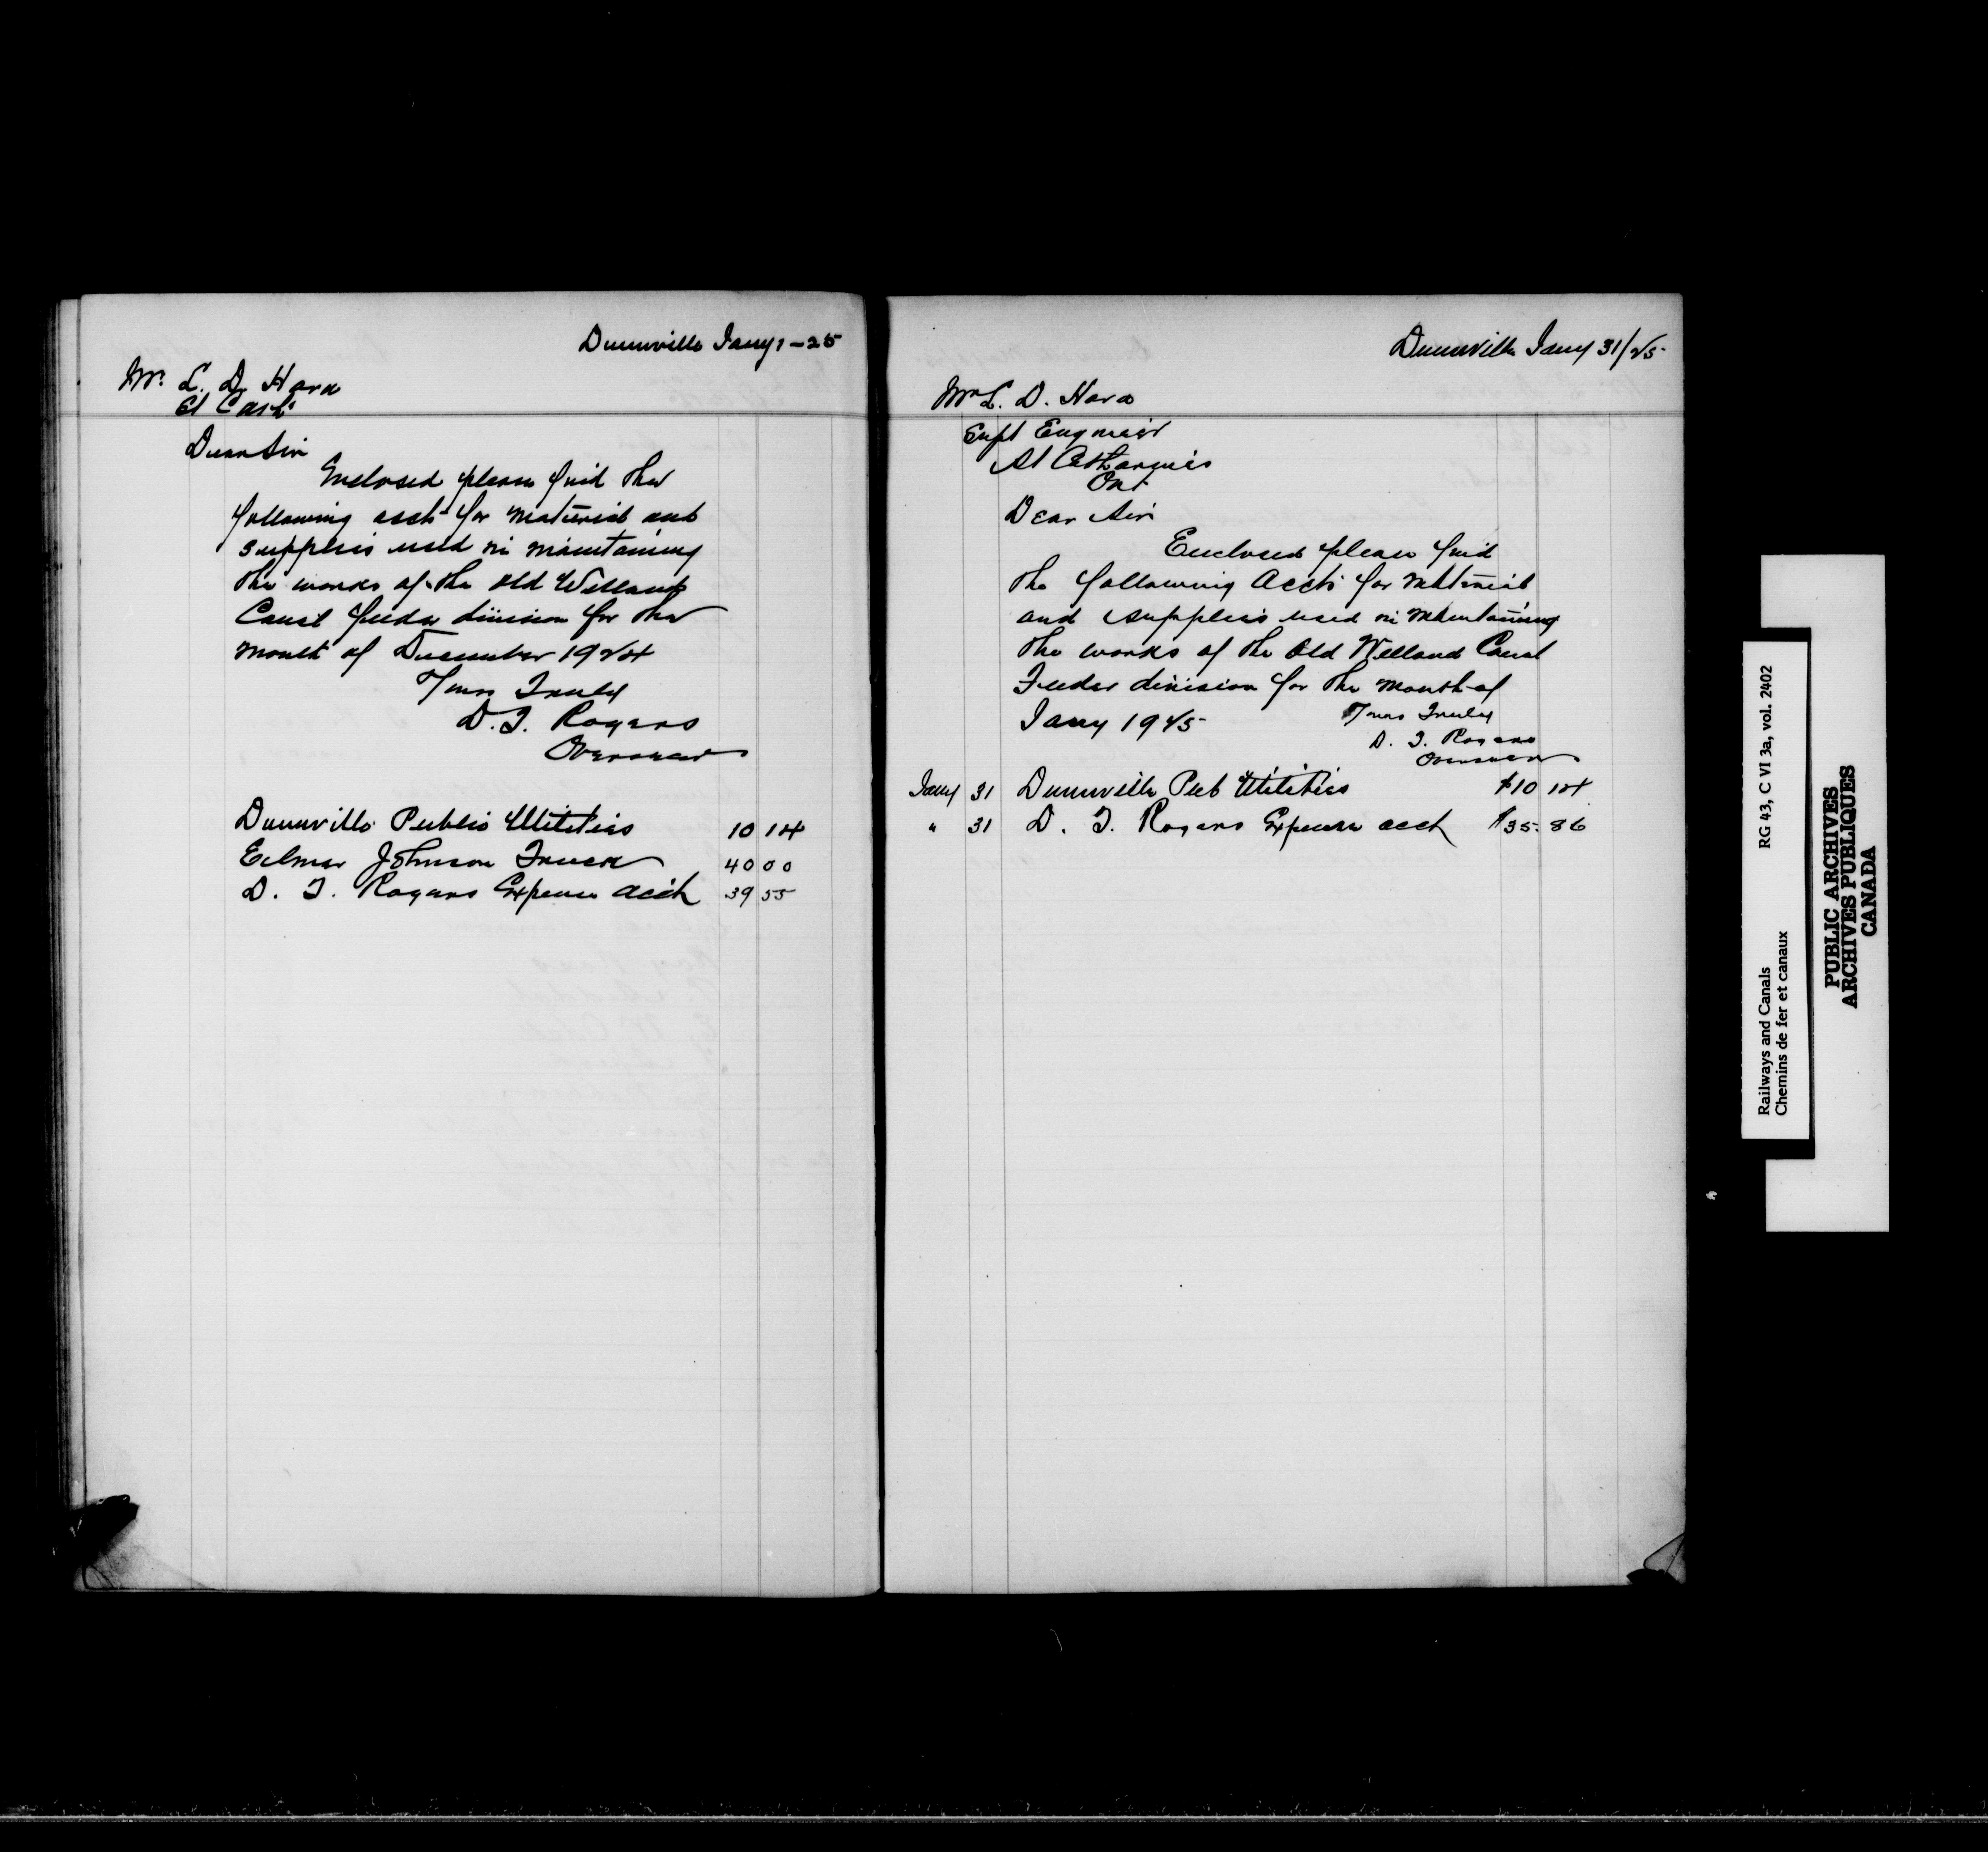 Dunnville Jany 1-25
Mr L. D. Hara
St Cath's
Dear Sir
Enclosed please find the
following accts for material and
supplies used in maintaining
the works of the old Welland
Canal feeder division for the
month of December 1924
Yours Truly
D. T. Rogers
Overseer
Dunnville Public Utilities 10 14
Elmer Johnson Truck 40 00
D. T. Rogers Expense acct 39 55
Dunnville Jany 31/25
Mr L. D. Hara
Supt Engineer
St Catharines
Ont
Dear Sir
Enclosed please find
the following Accts for material
and supplies used in maintaining
the works of the Old Welland Canal
Feeder division for the month of
Jany 1925 Yours Truly
D. T. Rogers
Overseer
Jany 31 Dunnville Pub Utilities $10 14
" 31 D. T. Rogers Expense acct $35.86
Railways and Canals RG 43, C VI 3a, vol. 2402
Chemins de fer et canaux
PUBLIC ARCHIVES
ARCHIVES PUBLIQUES
CANADA